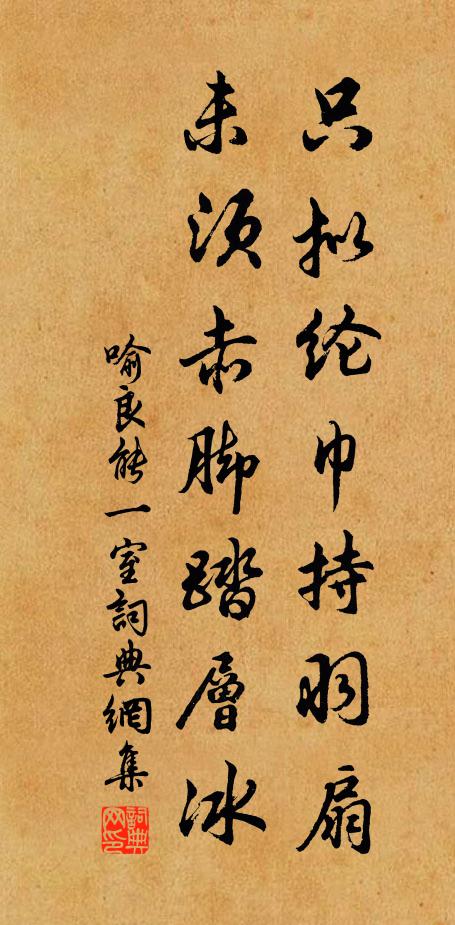 只拟纶巾持羽扇
未须赤脚踏層冰
喻良能一室詞典網集
詞典網印